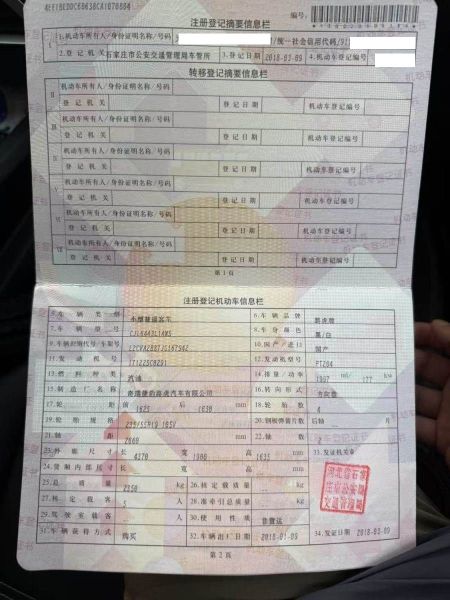 注册登记摘要信息栏
编号:
1.机动车所有人/身份证明名称/号码 /统一社会信用代码/91
2.登记机关 石家庄市公安交通管理局车管所 3.登记日期 2018-03-09 4.机动车登记编号
转移登记摘要信息栏
II 机动车所有人/身份证明名称/号码
登记机关 登记日期 机动车登记编号
III 机动车所有人/身份证明名称/号码
登记机关 登记日期 机动车登记编号
IV 机动车所有人/身份证明名称/号码
登记机关 登记日期 机动车登记编号
V 机动车所有人/身份证明名称/号码
登记机关 登记日期 机动车登记编号
VI 机动车所有人/身份证明名称/号码
登记机关 登记日期 机动车登记编号
VII 机动车所有人/身份证明名称/号码
登记机关 登记日期 机动车登记编号
第1页
注册登记机动车信息栏
5.车辆类型 小型普通客车 6.车辆品牌
7.车辆型号 8.车身颜色 黑/白
9.车辆识别代号/车架号 10.国产/进口 国产
11.发动机号 12.发动机型号 PT204
13.燃料种类 汽油 14.排量/功率 1997 ml/ 177 kw
15.制造厂名称 奇瑞捷豹路虎汽车有限公司 16.转向形式 方向盘
17.轮距 前 1625 后 1630 mm 18.轮胎数 4
19.轮胎规格 235/55R19 105V 20.钢板弹簧片数 后轴 片
21.轴距 2660 mm 22.轴数 2
23.外廓尺寸 长 4370 宽 1900 高 1635 mm 33.发证机关章
24.货厢内部尺寸 长 宽 高 mm
25.总质量 2350 kg 26.核定载质量 kg
27.核定载客 5 人 28.准牵引总质量 kg
29.驾驶室载客 人 30.使用性质 非营运
31.车辆获得方式 购买 32.车辆出厂日期 2018-01-09 34.发证日期 2018-03-09
第2页